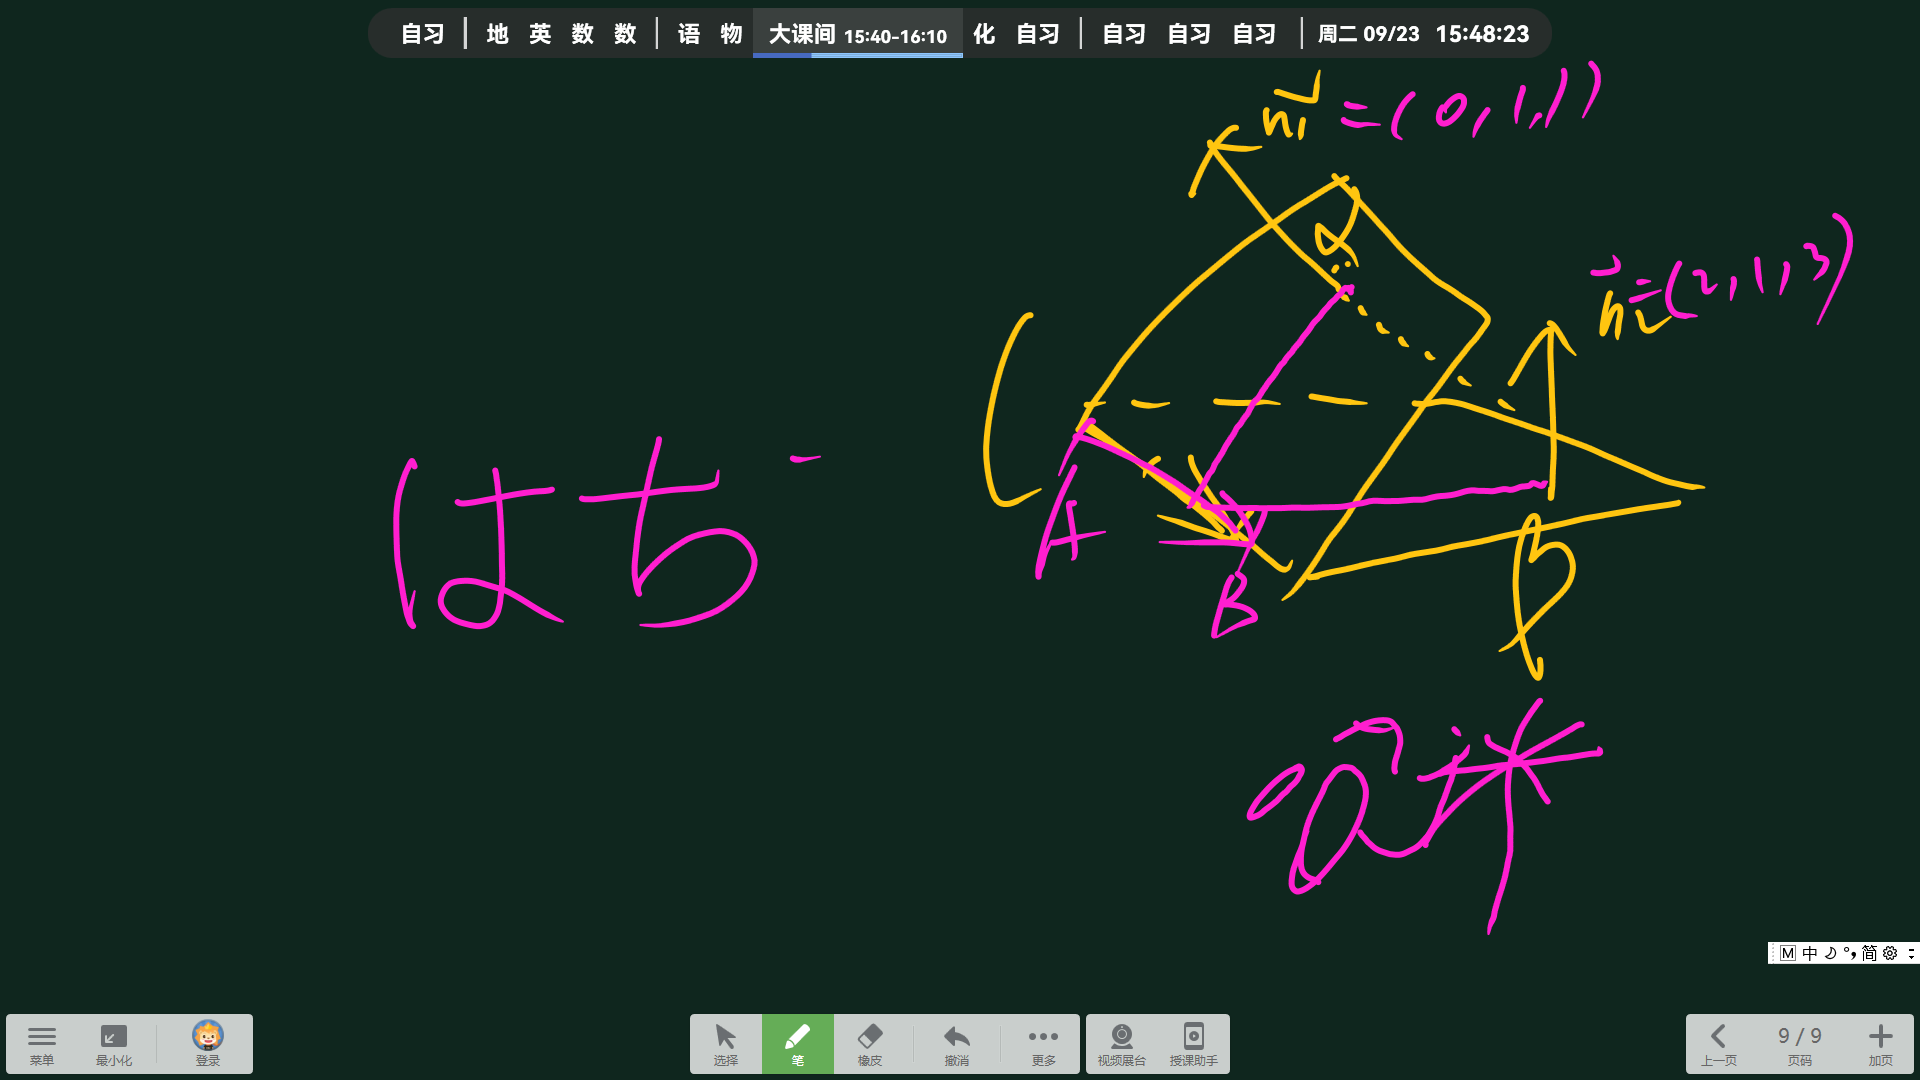 自习 | 地 英 数 数 | 语 物 大课间 15:40-16:10 化 自习 | 自习 自习 自习 | 周二 09/23 15:48:23
n₁ = (0,1,1)
α
n₂ = (2,1,3)
はち
A
B
β
M 中 简
菜单 最小化 登录 选择 笔 橡皮 撤消 更多 视频展台 授课助手 上一页 9 / 9 页码 加页